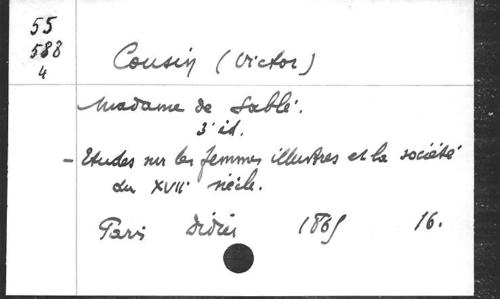 55
588
4
Cousin (Victor)
Madame de Sablé.
3e éd.
- Etudes sur les femmes illustres et la société
du XVIIe siècle.
Paris Didier 1865 16.